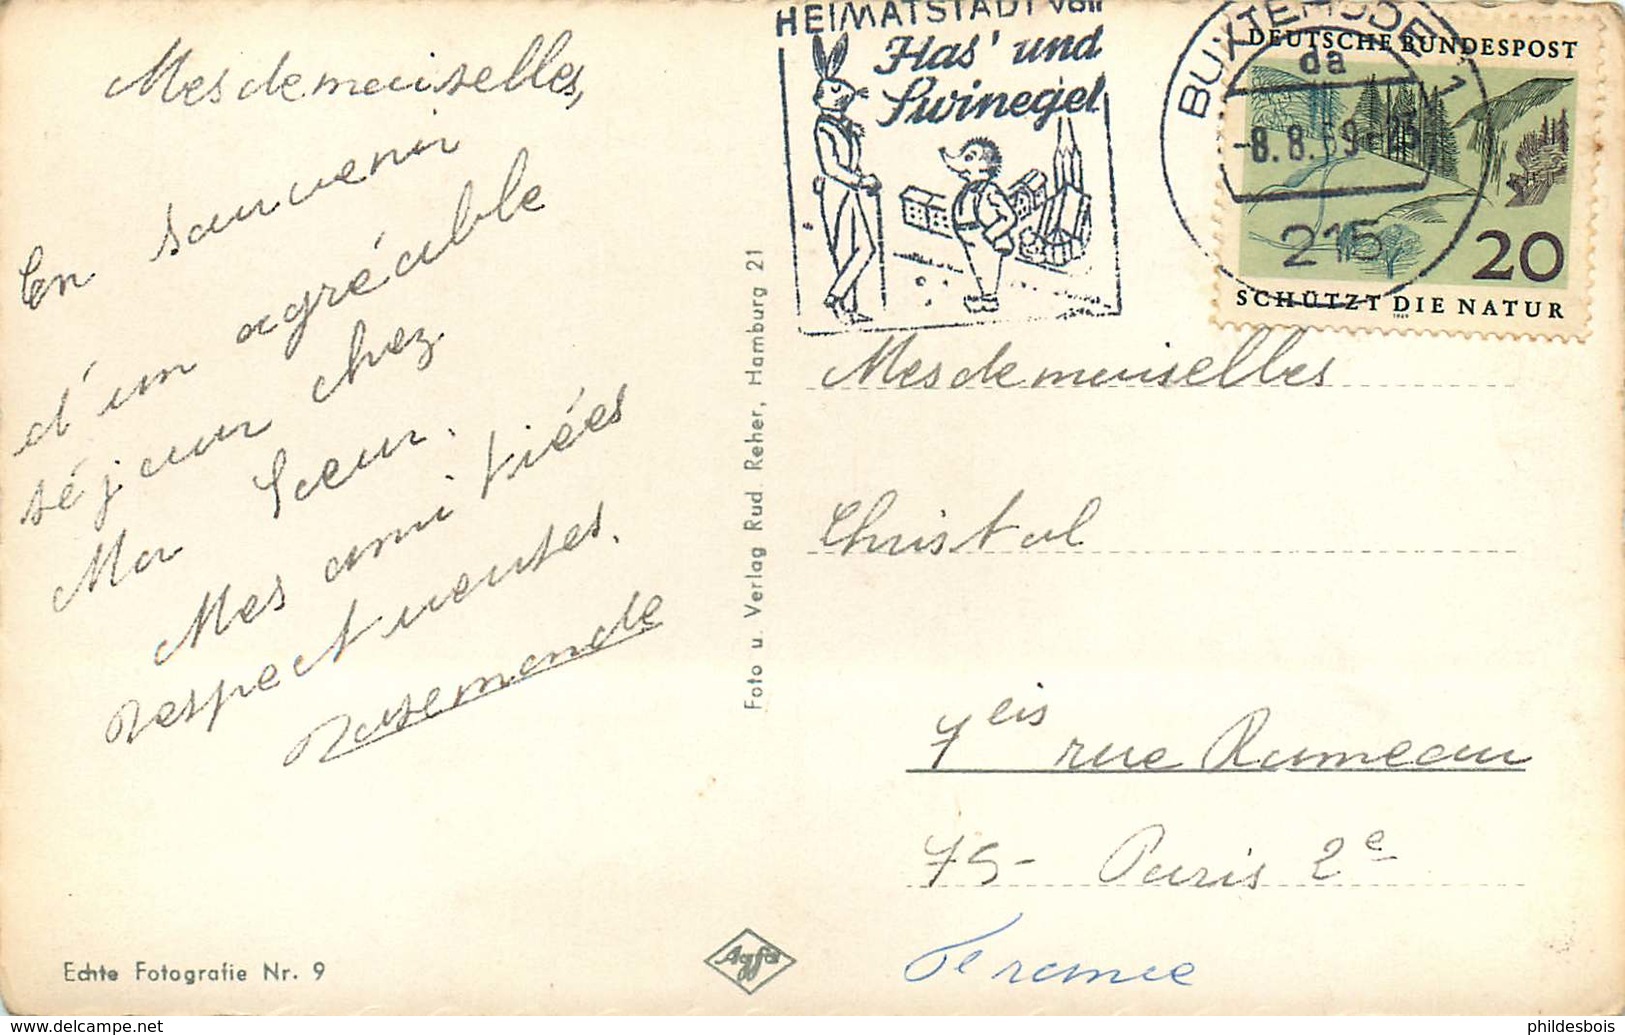 Mesdemoiselles,
En souvenir
d'un agréable
séjour chez
Ma Soeur.
Mes amitiées
respectueuses.
Rosemonde
Echte Fotografie Nr. 9
Foto u. Verlag Rud. Reher, Hamburg 21
Agfa
HEIMATSTADT von
Has' und
Swinegel
BUXTEHUDE 1
da
-8.8.69-
215
DEUTSCHE BUNDESPOST
20
SCHÜTZT DIE NATUR
1969
Mesdemoiselles
Christol
7 eis rue Rameau
75- Paris 2e
France
www.delcampe.net
phildesbois